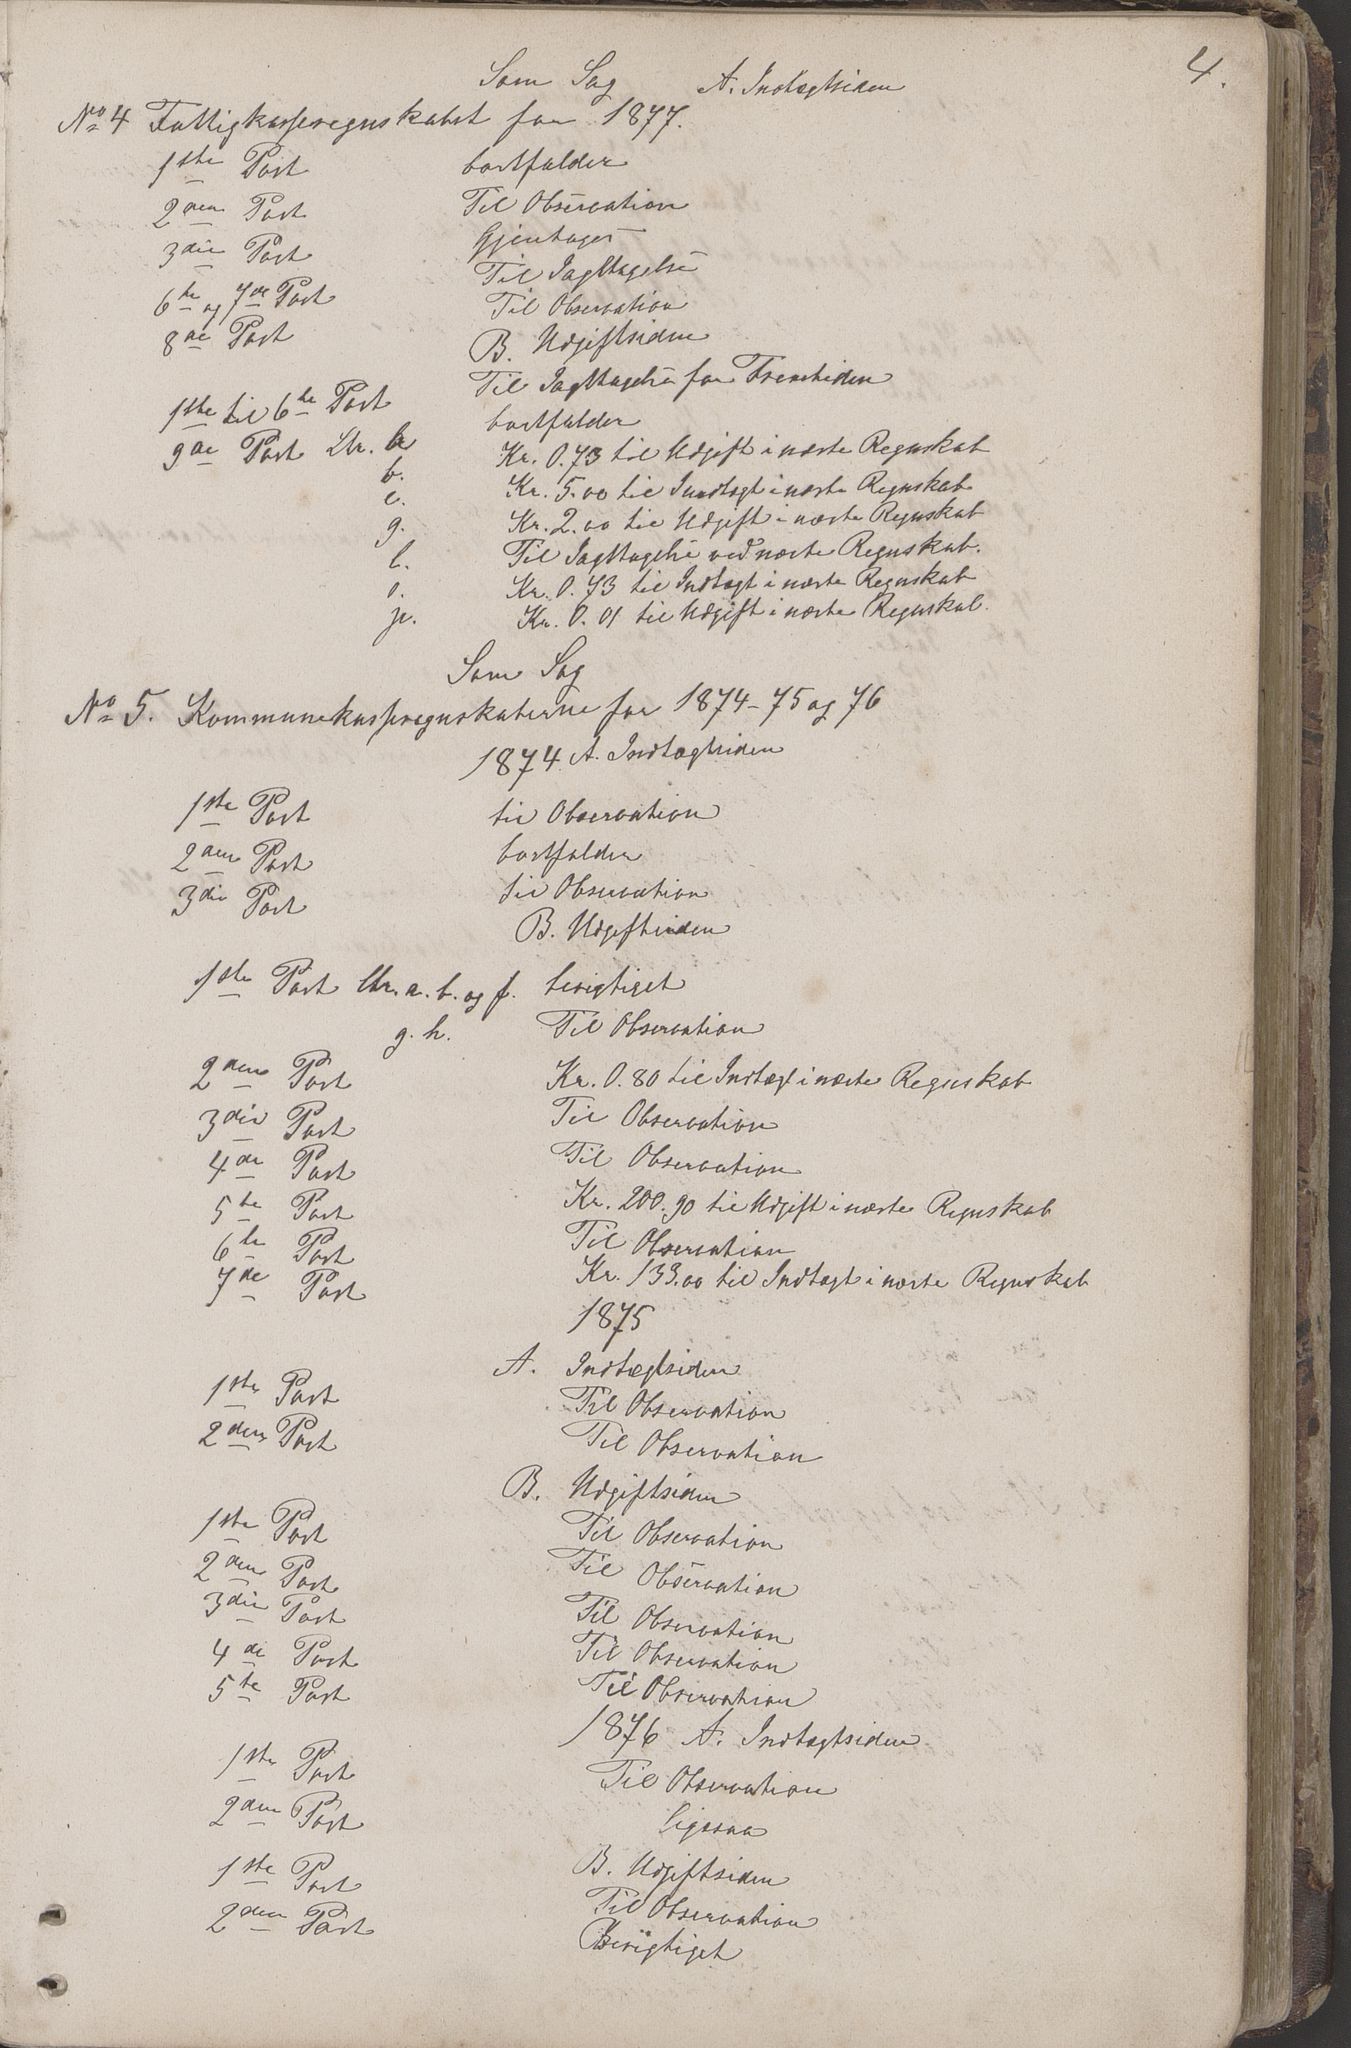 4.
Som Sag
No 4 Fattigkasseregnskabet for 1877.
A. Indtægtsiden
1ste Post bortfalder
2den Post Til Observation
3die Post Gjentages
6te og 7de Post Til Iagttagelse
8de Post Til Observation
B. Udgiftsiden
1ste til 6te Post Til Iagttagelse for Fremtiden
9de Post Ltr. a bortfalder
b. Kr. 0.73 til Udgift i næste Regnskab
e. Kr. 5.00 til Indtægt i næste Regnskab
g. Kr. 2.00 til Udgift i næste Regnskab
l. Til Iagttagelse ved næste Regnskab.
o. Kr. 0.73 til Indtægt i næste Regnskab
p. Kr. 0.01 til Udgift i næste Regnskab.
Som Sag
No 5. Kommunekasseregnskaberne for 1874-75 og 76
1874 A. Indtægtsiden
1ste Post til Observation
2den Post bortfalder
3die Post til Observation
B. Udgiftsiden
1ste Post Ltr. a. b. og f. berigtiget
g. h. Til Observation
2den Post Kr. 0.80 til Indtægt i næste Regnskab
3die Post Til Observation
4de Post Til Observation
5te Post Kr. 200.90 til Udgift i næste Regnskab
6te Post Til Observation
7de Post Kr. 133.00 til Indtægt i næste Regnskab
1875
A. Indtægtsiden
1ste Post Til Observation
2den Post Til Observation
B. Udgiftsiden
1ste Post Til Observation
2den Post Til Observation
3die Post Til Observation
4de Post Til Observation
5te Post Til Observation
1876 A. Indtægtsiden
1ste Post Til Observation
2den Post ligesaa
B. Udgiftsiden
1ste Post Til Observation
2den Post Berigtiget